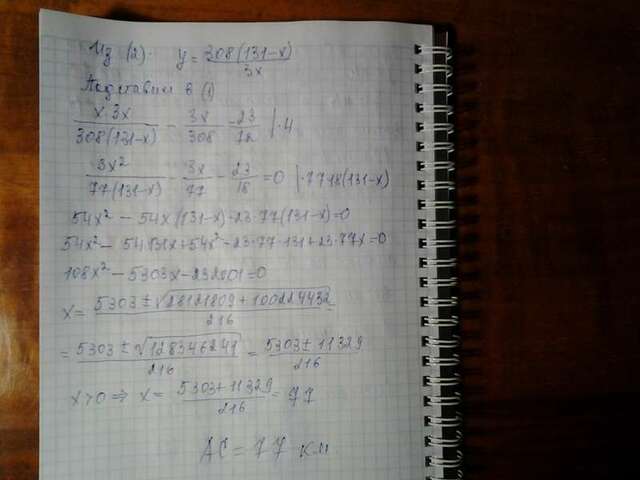 Из (2). y = 308(131-x)/3x
Подставим в (1)
x·3x/308(131-x) - 3x/308 - 23/72 |·4
3x²/77(131-x) - 3x/77 - 23/18 = 0 |·77·18(131-x)
54x² - 54x(131-x) - 23·77(131-x) = 0
54x² - 54·131x + 54x² - 23·77·131 + 23·77x = 0
108x² - 5303x - 232001 = 0
x = 5303 ± √28121809 + 100224432/216
= 5303 ± √128346241/216 = 5303 ± 11329/216
x>0 ⇒ x = 5303 + 11329/216 = 77
AC = 77 км